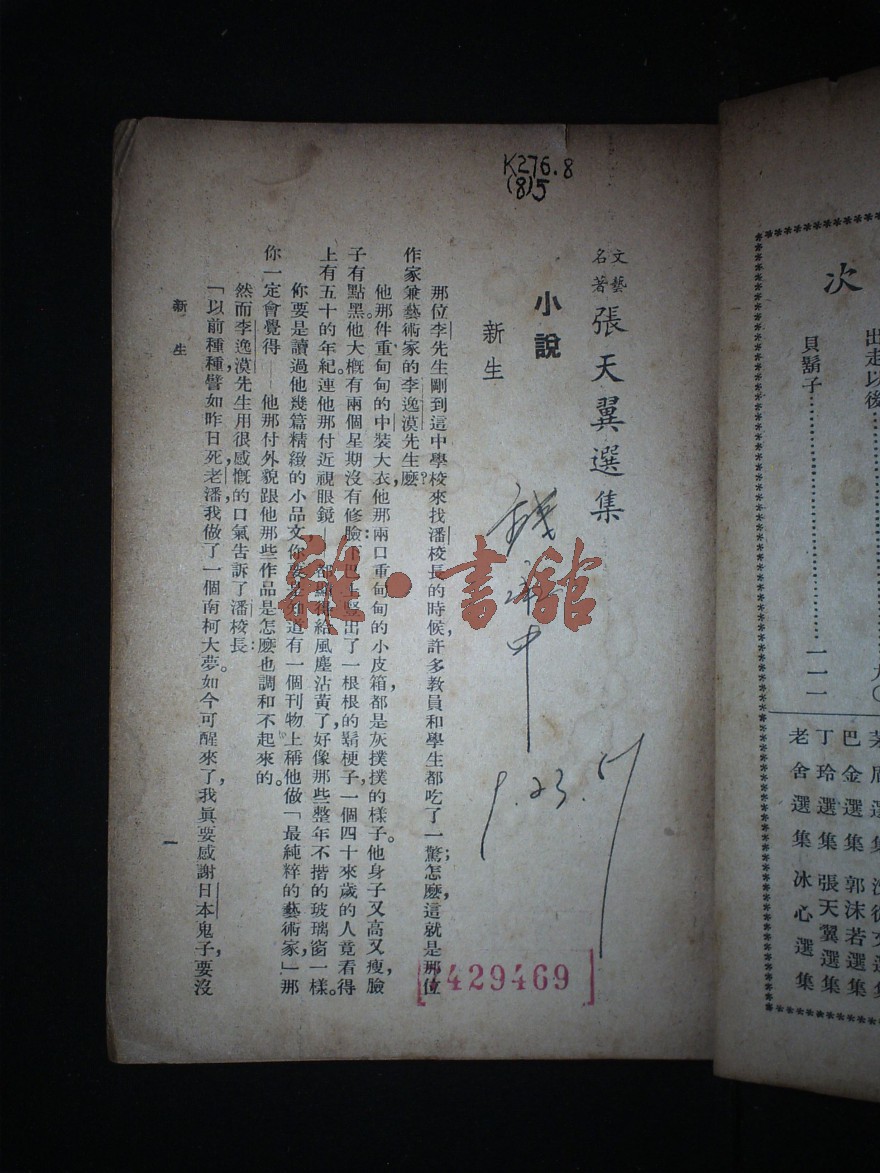 K276.8
(8)5
文藝
名著
張天翼選集
小說
新生
那位李先生剛到這中學校來找潘校長的時候，許多教員和學生都吃了一驚；怎麼，這就是那位
作家兼藝術家的李逸漠先生麼？
他那件重甸甸的中裝大衣，他那兩口重甸甸的小皮箱，都是灰撲撲的樣子。他身子又高又瘦，臉
子有點黑。他大概有兩個星期沒有修臉：下巴上豎出了一根根的鬍梗子，一個四十來歲的人竟看得
上有五十的年紀。連他那付近視眼鏡——都顯得給風塵沾黃了，好像那些整年不揩的玻璃窗一樣。
你要是讀過他幾篇精緻的小品文，你要是知道有一個刊物上稱他做「最純粹的藝術家，」那
你一定會覺得——他那付外貌跟他那些作品是怎麼也調和不起來的。
然而李逸漠先生用很感慨的口氣告訴了潘校長：
「以前種種，譬如昨日死，老潘，我做了一個南柯大夢。如今可醒來了，我真要感謝日本鬼子，要沒
新生
一
9.23.51
429469
雜·書館
次
出走以後
九〇
貝鬍子
一一一
巴金選集
郭沫若選集
丁玲選集
張天翼選集
老舍選集
冰心選集